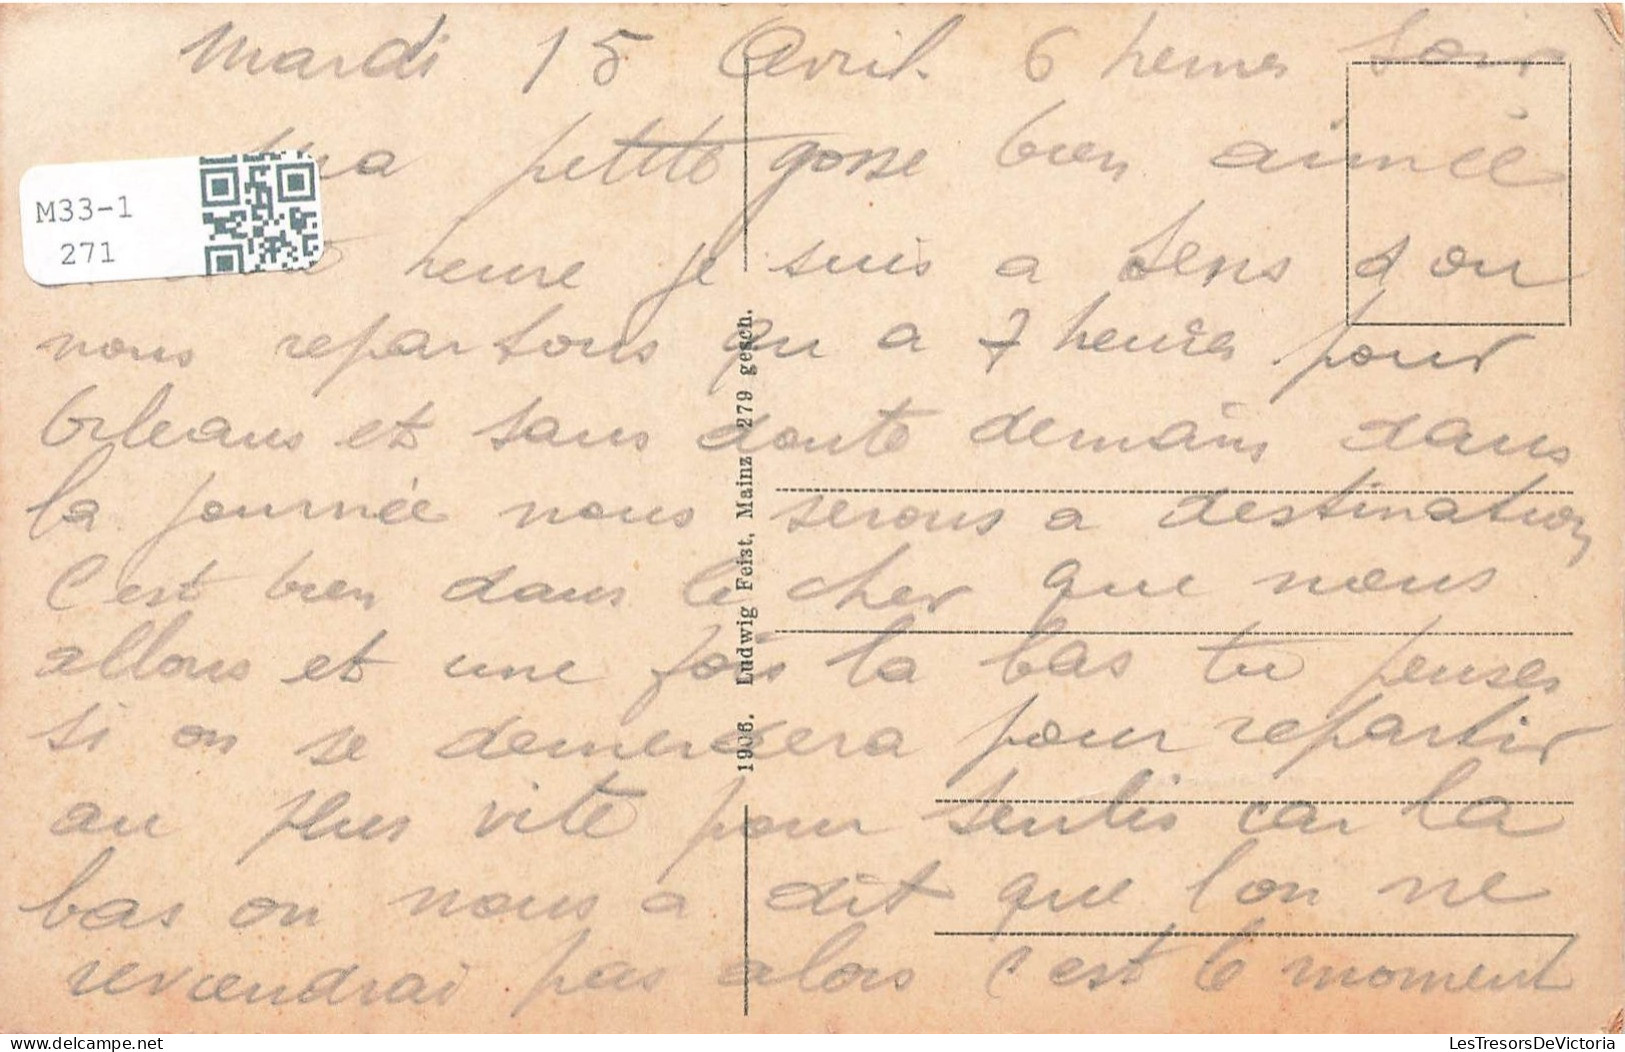 Mardi 15 Avril. 6 heures Soir
ma petite gosse bien aimée
heure je suis a Sens d ou
nous repartons qu a 7 heures pour
Orleans et sans doute demain dans
la journée nous serons a destination,
C'est bien dans le cher que nous
allons et une fois la bas tu penses
si on se demerdera pour repartir
au plus vite pour Senlis car la
bas on nous a dit que l on ne
reviendrai pas alors C'est le moment
M33-1
271
1906. Ludwig Feist, Mainz 279 gesch.
LesTresorsDeVictoria
delcampe.net